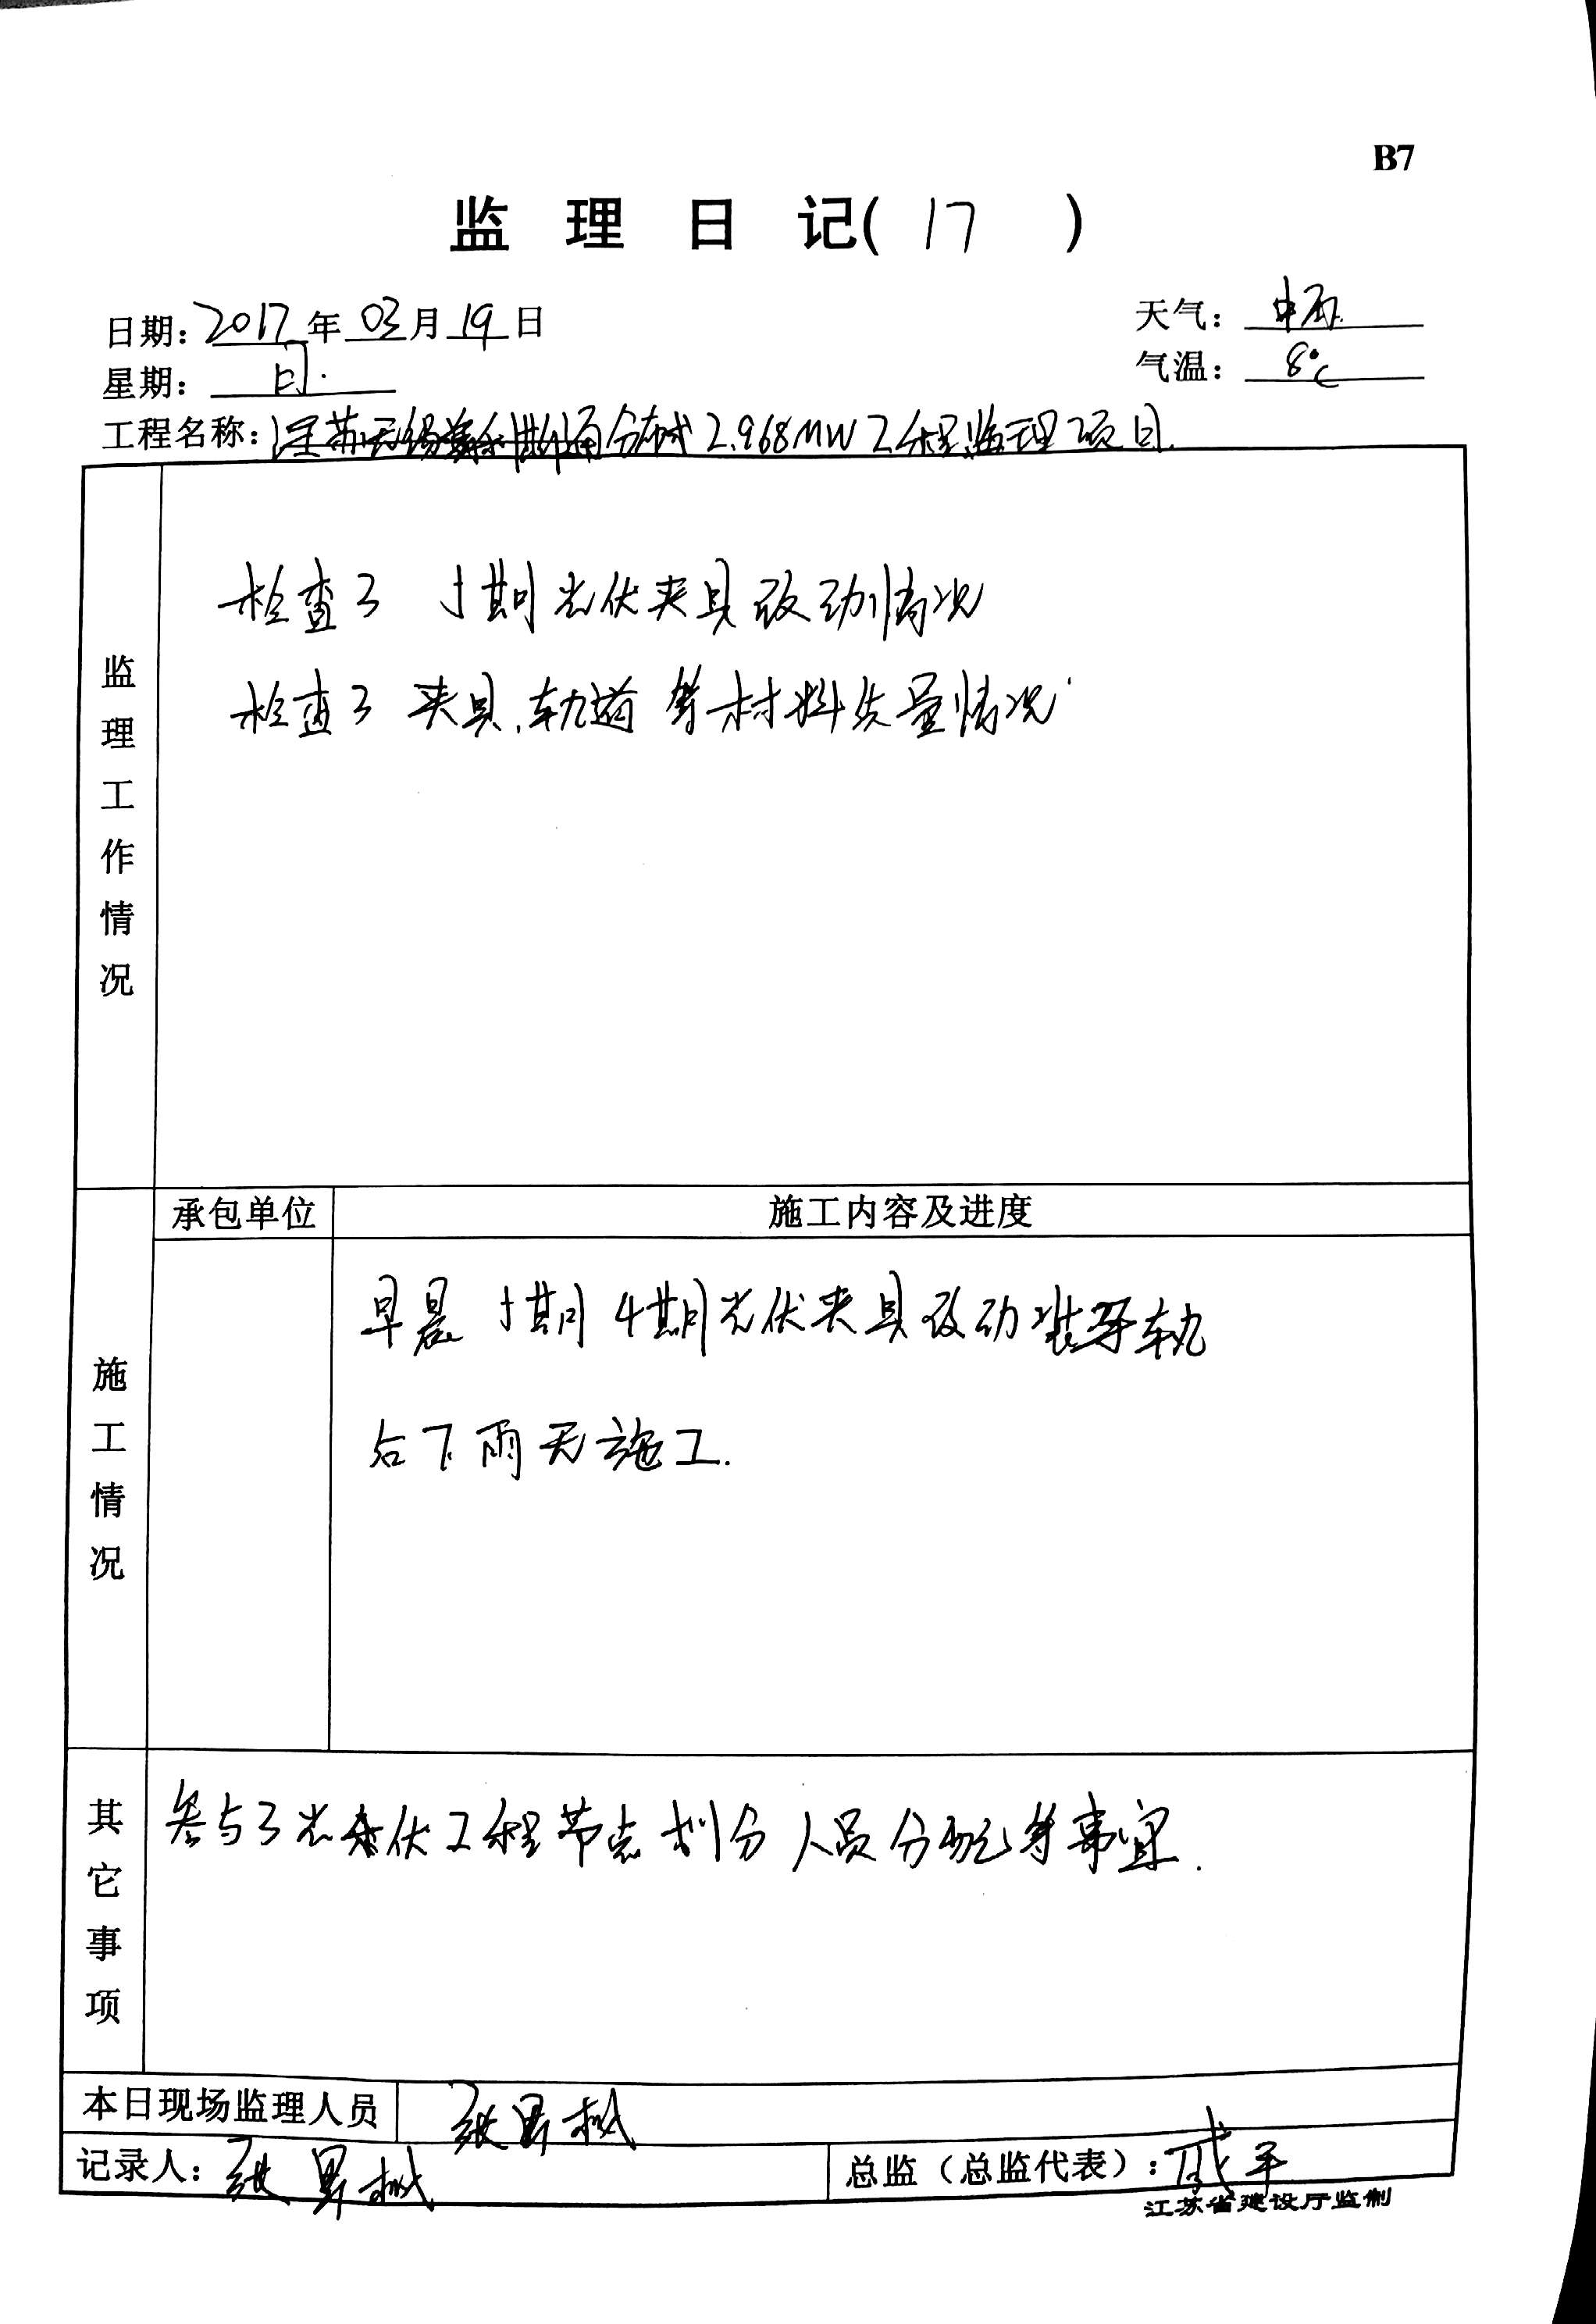 B7
监理日记(17)
日期:2017年03月19日
天气:中雨
星期:日
气温:8℃
工程名称:江苏无锡 分布式2.968MW工程监理项目
监理工作情况
检查了 期光伏夹具改动情况
检查了夹具、轨道等材料质量情况
承包单位 施工内容及进度
施工情况
早晨 期4期光伏夹具改动装导轨
后下雨无施工.
其它事项
参与了光伏工程节点划分人员分配等事宜.
本日现场监理人员 张
记录人:张
总监(总监代表):戚平
江苏省建设厅监制